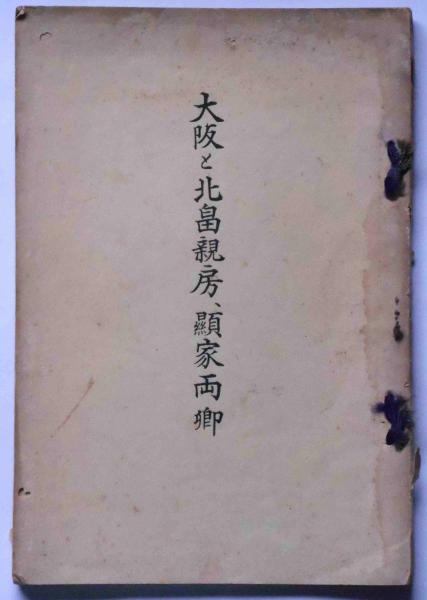 大阪と北畠親房、顯家両卿